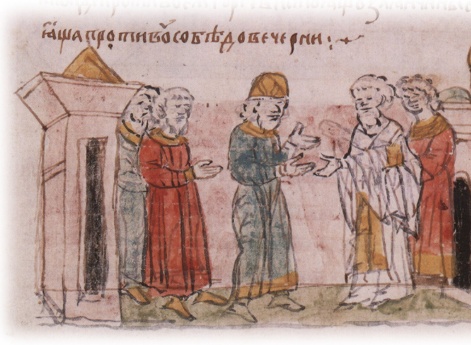 ꙗша противꙋ собѣ до вечерни :~